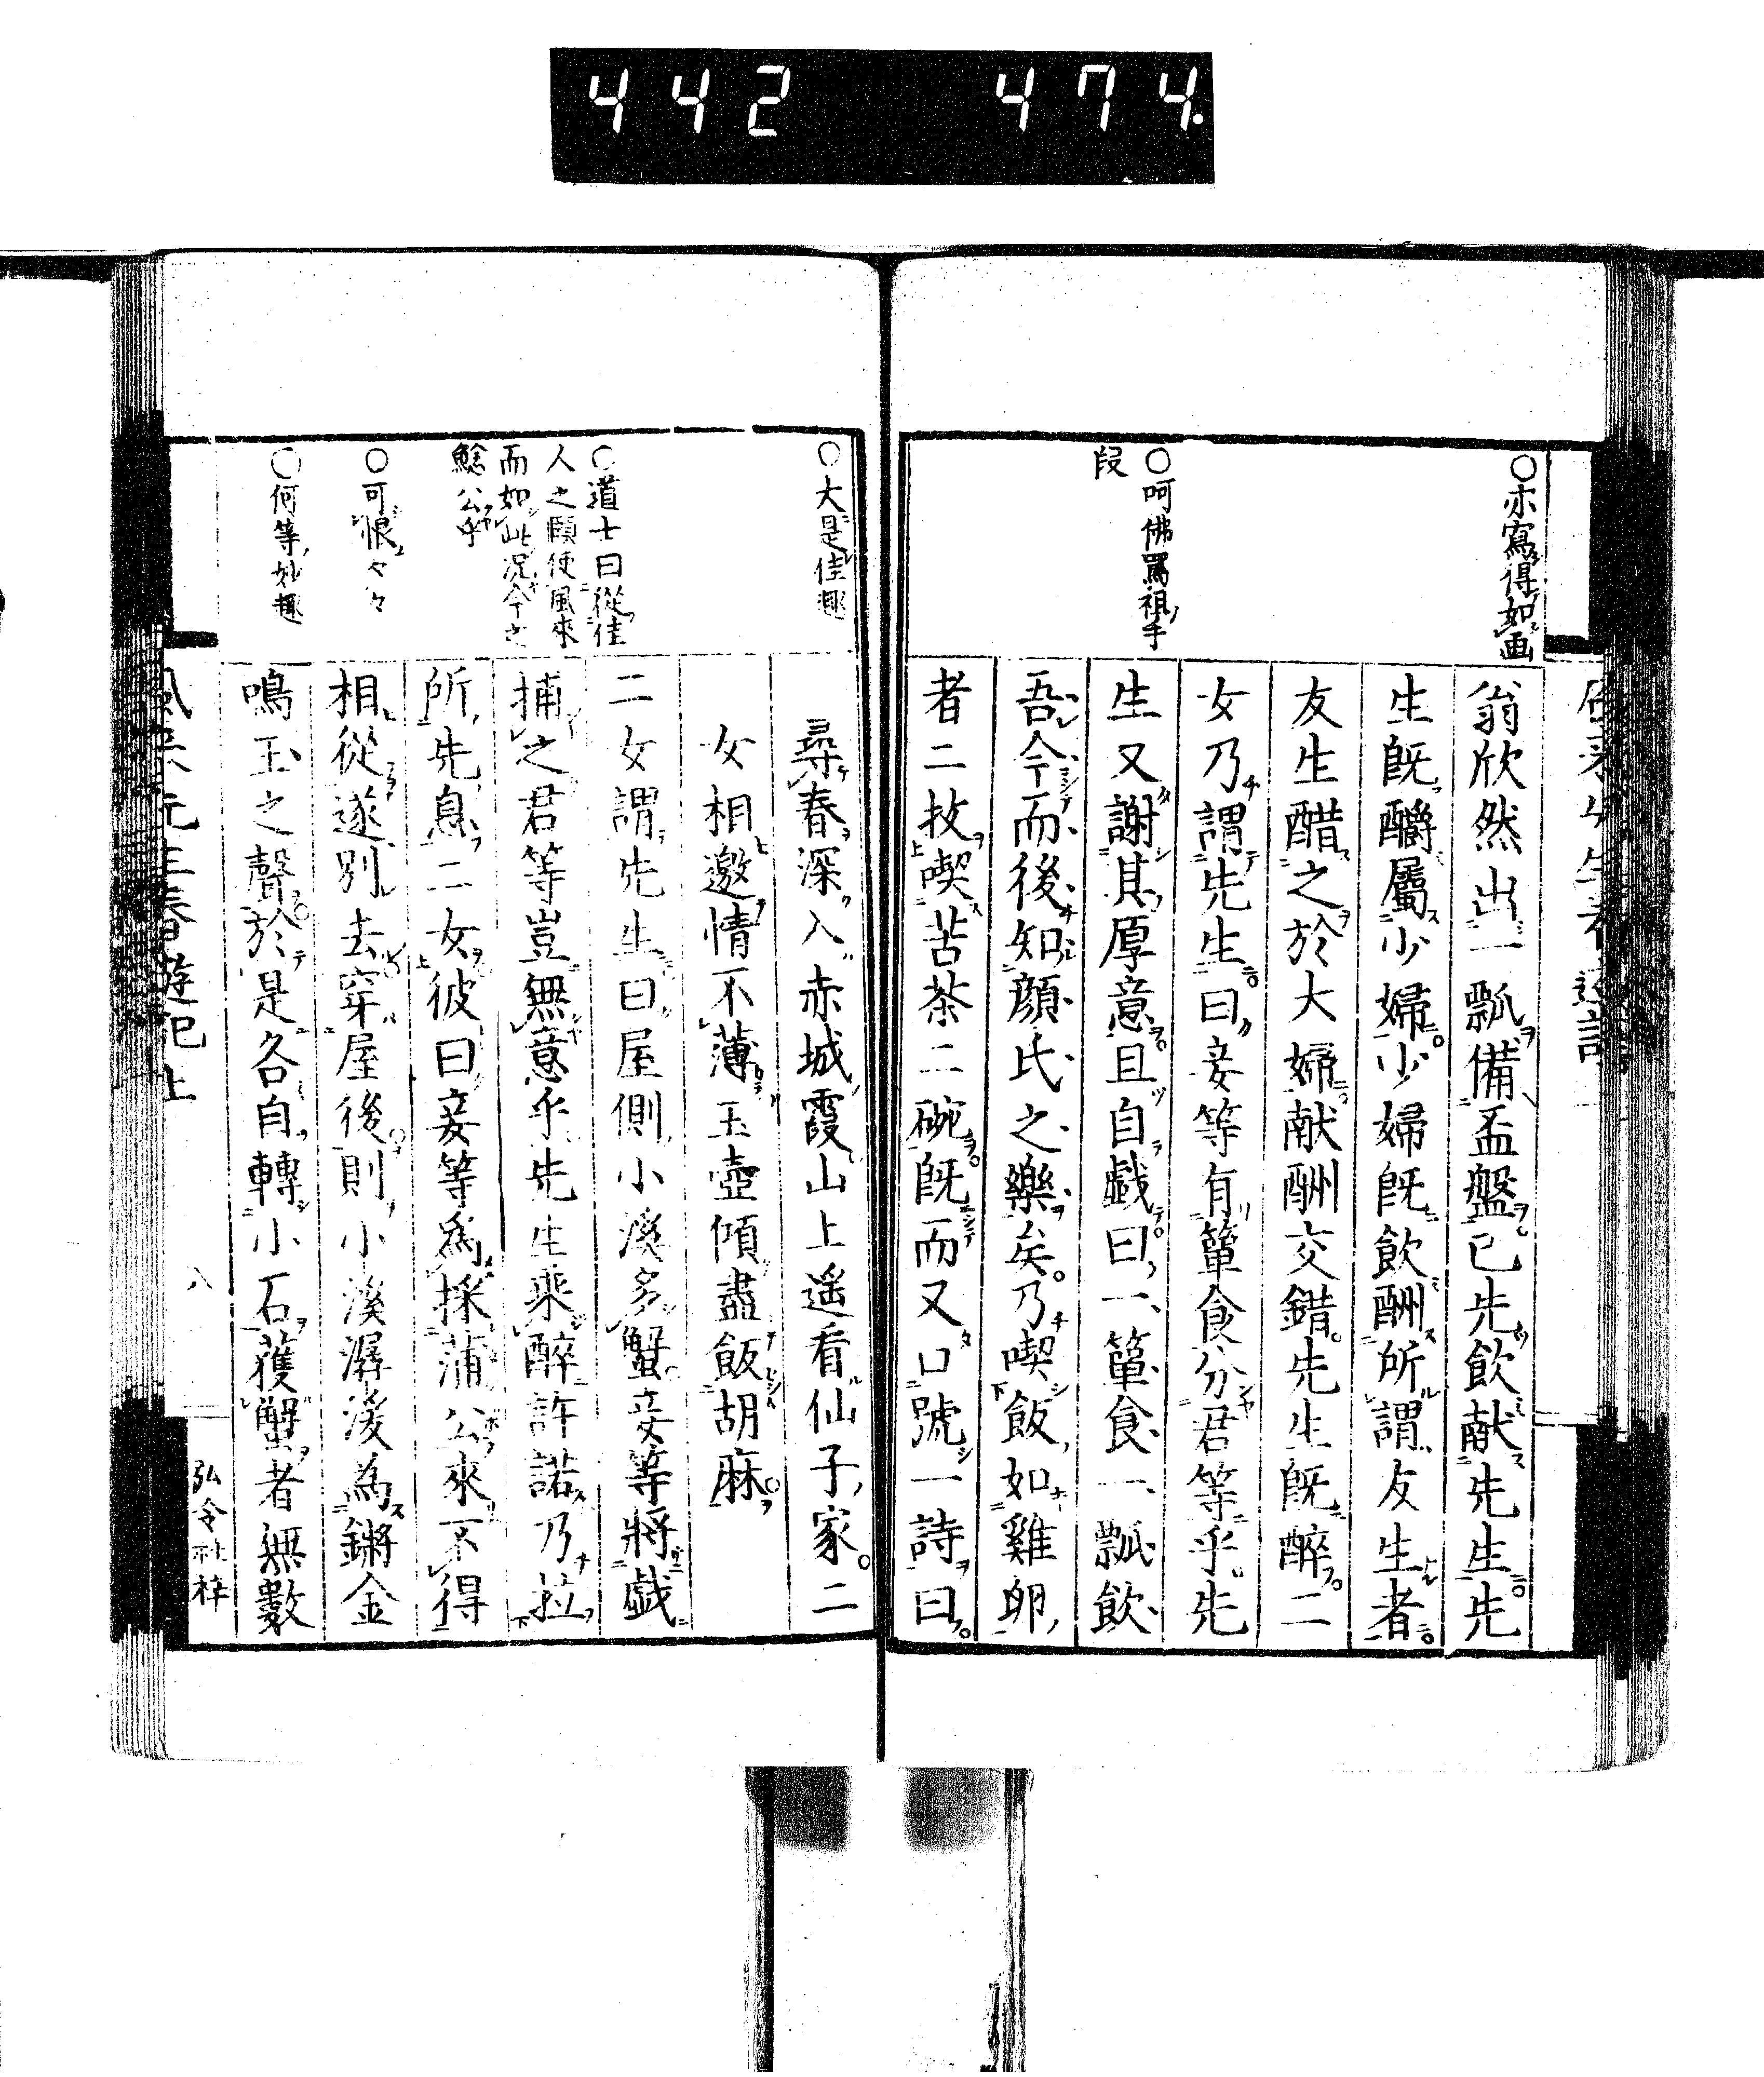 442 474.
○亦寫得如画
○呵佛罵祖手
段
翁欣然出一瓢備盃盤已先飲献先生先
生既釂屬少婦少婦既飲酬所謂友生者
友生醋之於大婦献酬交錯先生既醉二
女乃謂先生曰妾等有簞食分君等乎先
生又謝其厚意且自戯曰一簞食一瓢飲
吾今而後知顔氏之樂矣乃喫飯如雞卵
者二枚喫苦茶二碗既而又口號一詩曰
○大是佳趣
○道士曰從佳
人之願使風來
而如此况今之
鯰公乎
○可恨々々
○何等妙趣
尋春深入赤城霞山上遙看仙子家二
女相邀情不薄玉壺傾盡飯胡麻
二女謂先生曰屋側小溪多蟹妾等將戯
捕之君等豈無意乎先生乘醉許諾乃拉
所先息二女彼曰妾等爲採蒲公來不得
相從遂別去穿屋後則小溪潺湲為鏘金
鳴玉之聲於是各自轉小石獲蟹者無數
風來先生春遊記上
八
弘令社梓